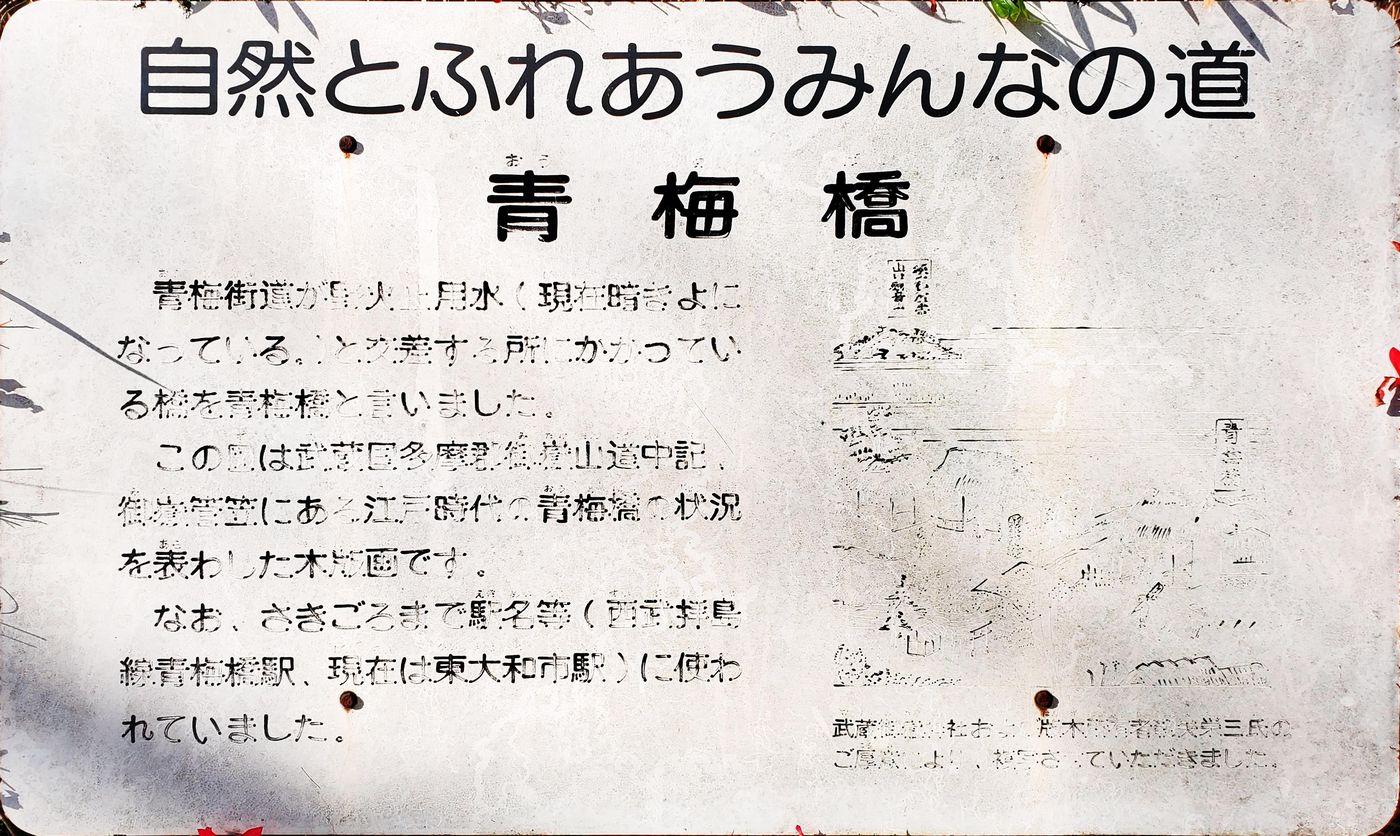 自然とふれあうみんなの道
青梅橋
青梅街道が野火止用水(現在暗きよに
なっている。)と交差する所にかかってい
る橋を青梅橋と言いました。
この図は武蔵国多摩郡御嶽山道中記、
御嶽菅笠にある江戸時代の青梅橋の状況
を表わした木版画です。
なお、さきごろまで駅名等(西武拝島
線青梅橋駅、現在は東大和市駅)に使わ
れていました。
青梅橋
武蔵御嶽神社および版木所有者 栄三氏の
ご厚意により、 さ ていただきました。